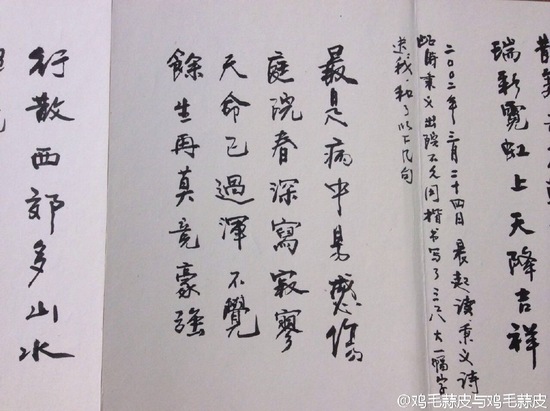 瑞彩霓虹上天降吉祥
二〇〇二年三月二十四日晨起读秉义诗
此时秉义出院不久用楷书写了三尺大一幅字
送我，和了以上几句
最是病中易感伤
庭院春深寫寂寥
天命已過渾不覺
餘生再莫竞豪強
行散西郊多山水
@鸡毛蒜皮与鸡毛蒜皮